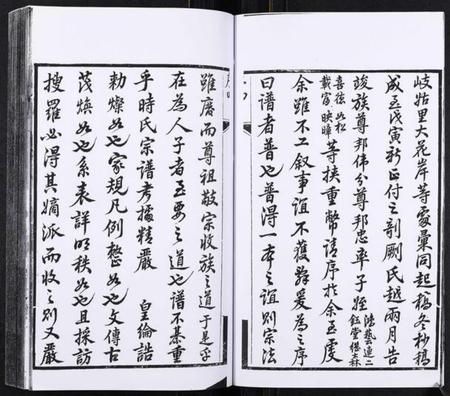 岐姑里大花岸等處彙同起稿冬杪稿
成至戊寅新正付之剞劂氏越兩月告
竣族尊邦偉分尊邦忠率子姪
法藝連二
鈺堂
喜德 如松
載富 映暲
等挾重幣請序於余至虔
余雖不工敘事誼不獲辭爰為之序
曰譜者普也普得一本之誼別宗法
雖廢而尊祖敬宗收族之道于是乎
在為人子者至要之道也譜不綦重
乎時氏宗譜考據精嚴 皇綸誥
勅燦如也家規凡例整如也文傳古
茂煥如也系表詳明秩如也且採訪
搜羅必得其嫡派而收之別又嚴